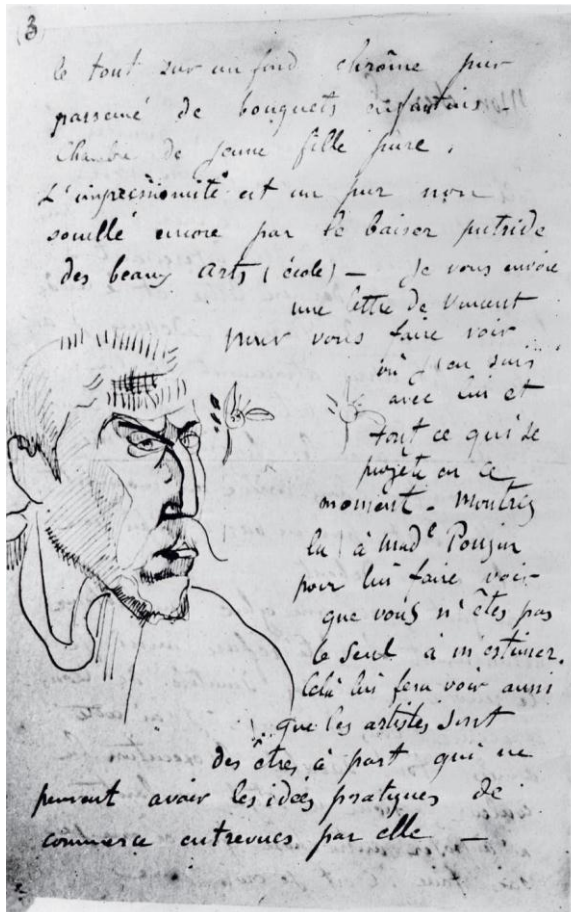 (3)
le tout sur un fond chrôme pur
parsemé de bouquets enfantins.
Chambre de jeune fille pure.
L'impressioniste est un pur non
souillé encore par le baiser putride
des beaux arts (école) — Je vous envoie
une lettre de Vincent
pour vous faire voir
où j'en suis
avec lui et
tout ce qui se
projete en ce
moment. Montrez
la à Mad^e
pour lui faire voir
que vous n'êtes pas
le seul à m'estimer.
Celà lui fera voir aussi
que les artistes sont
des êtres à part qui ne
peuvent avoir les idées pratiques de
commerce entrevues par elle —